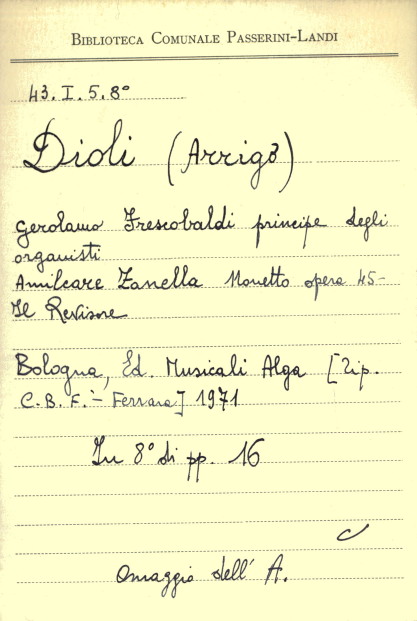 BIBLIOTECA COMUNALE PASSERINI-LANDI
43. I. 5. 8°
Dioli (Arrigo)
Gerolamo Frescobaldi principe degli
organisti
Amilcare Zanella Nonetto opera 45-
Il Revisore
Bologna, Ed. Musicali Alga [Tip.
C.B.F. - Ferrara] 1971
In 8° di pp. 16
Omaggio dell' A.